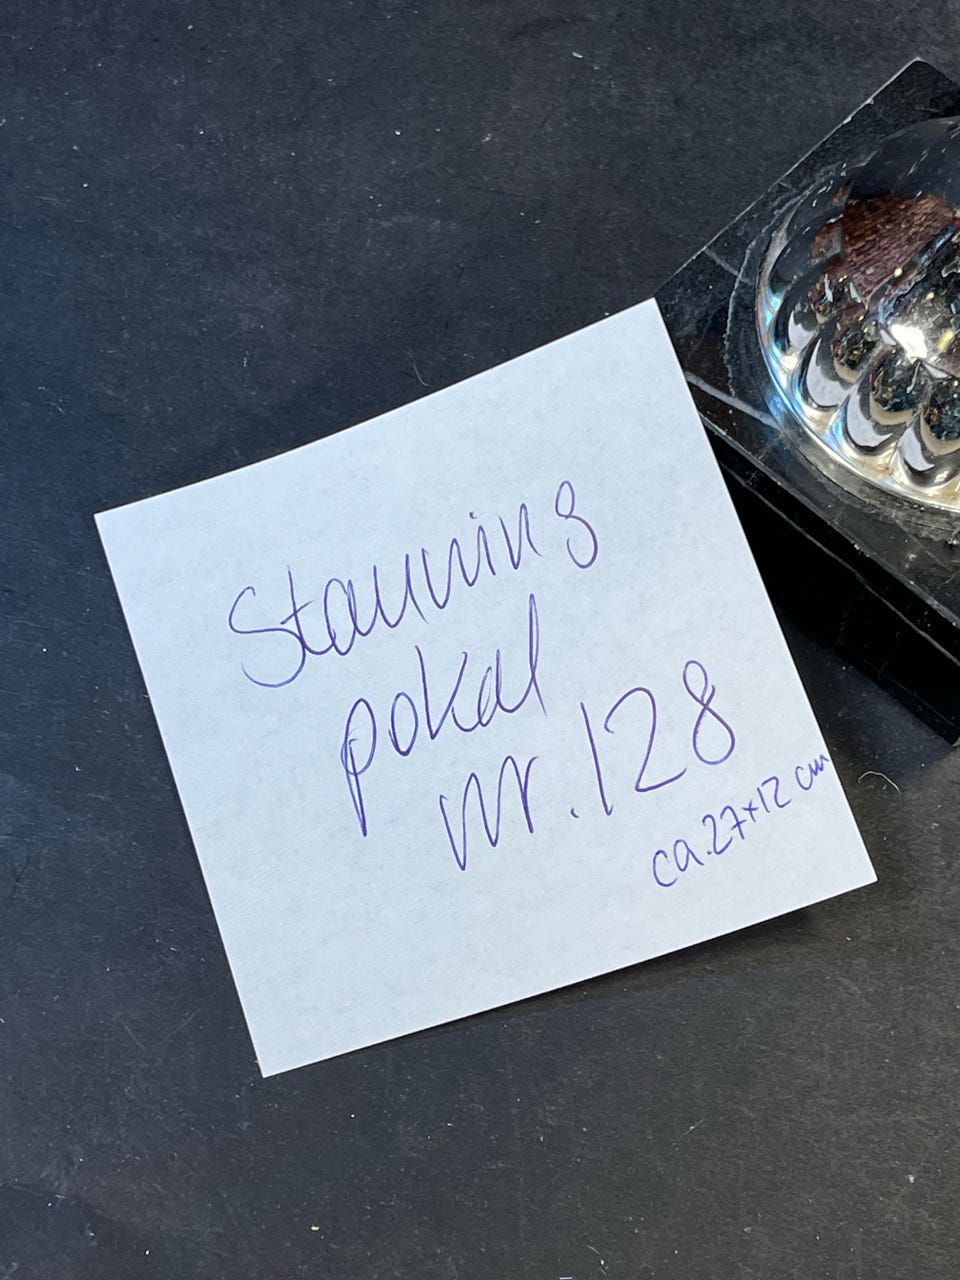 Stauning
pokal
nr. 128
ca. 27x12 cm